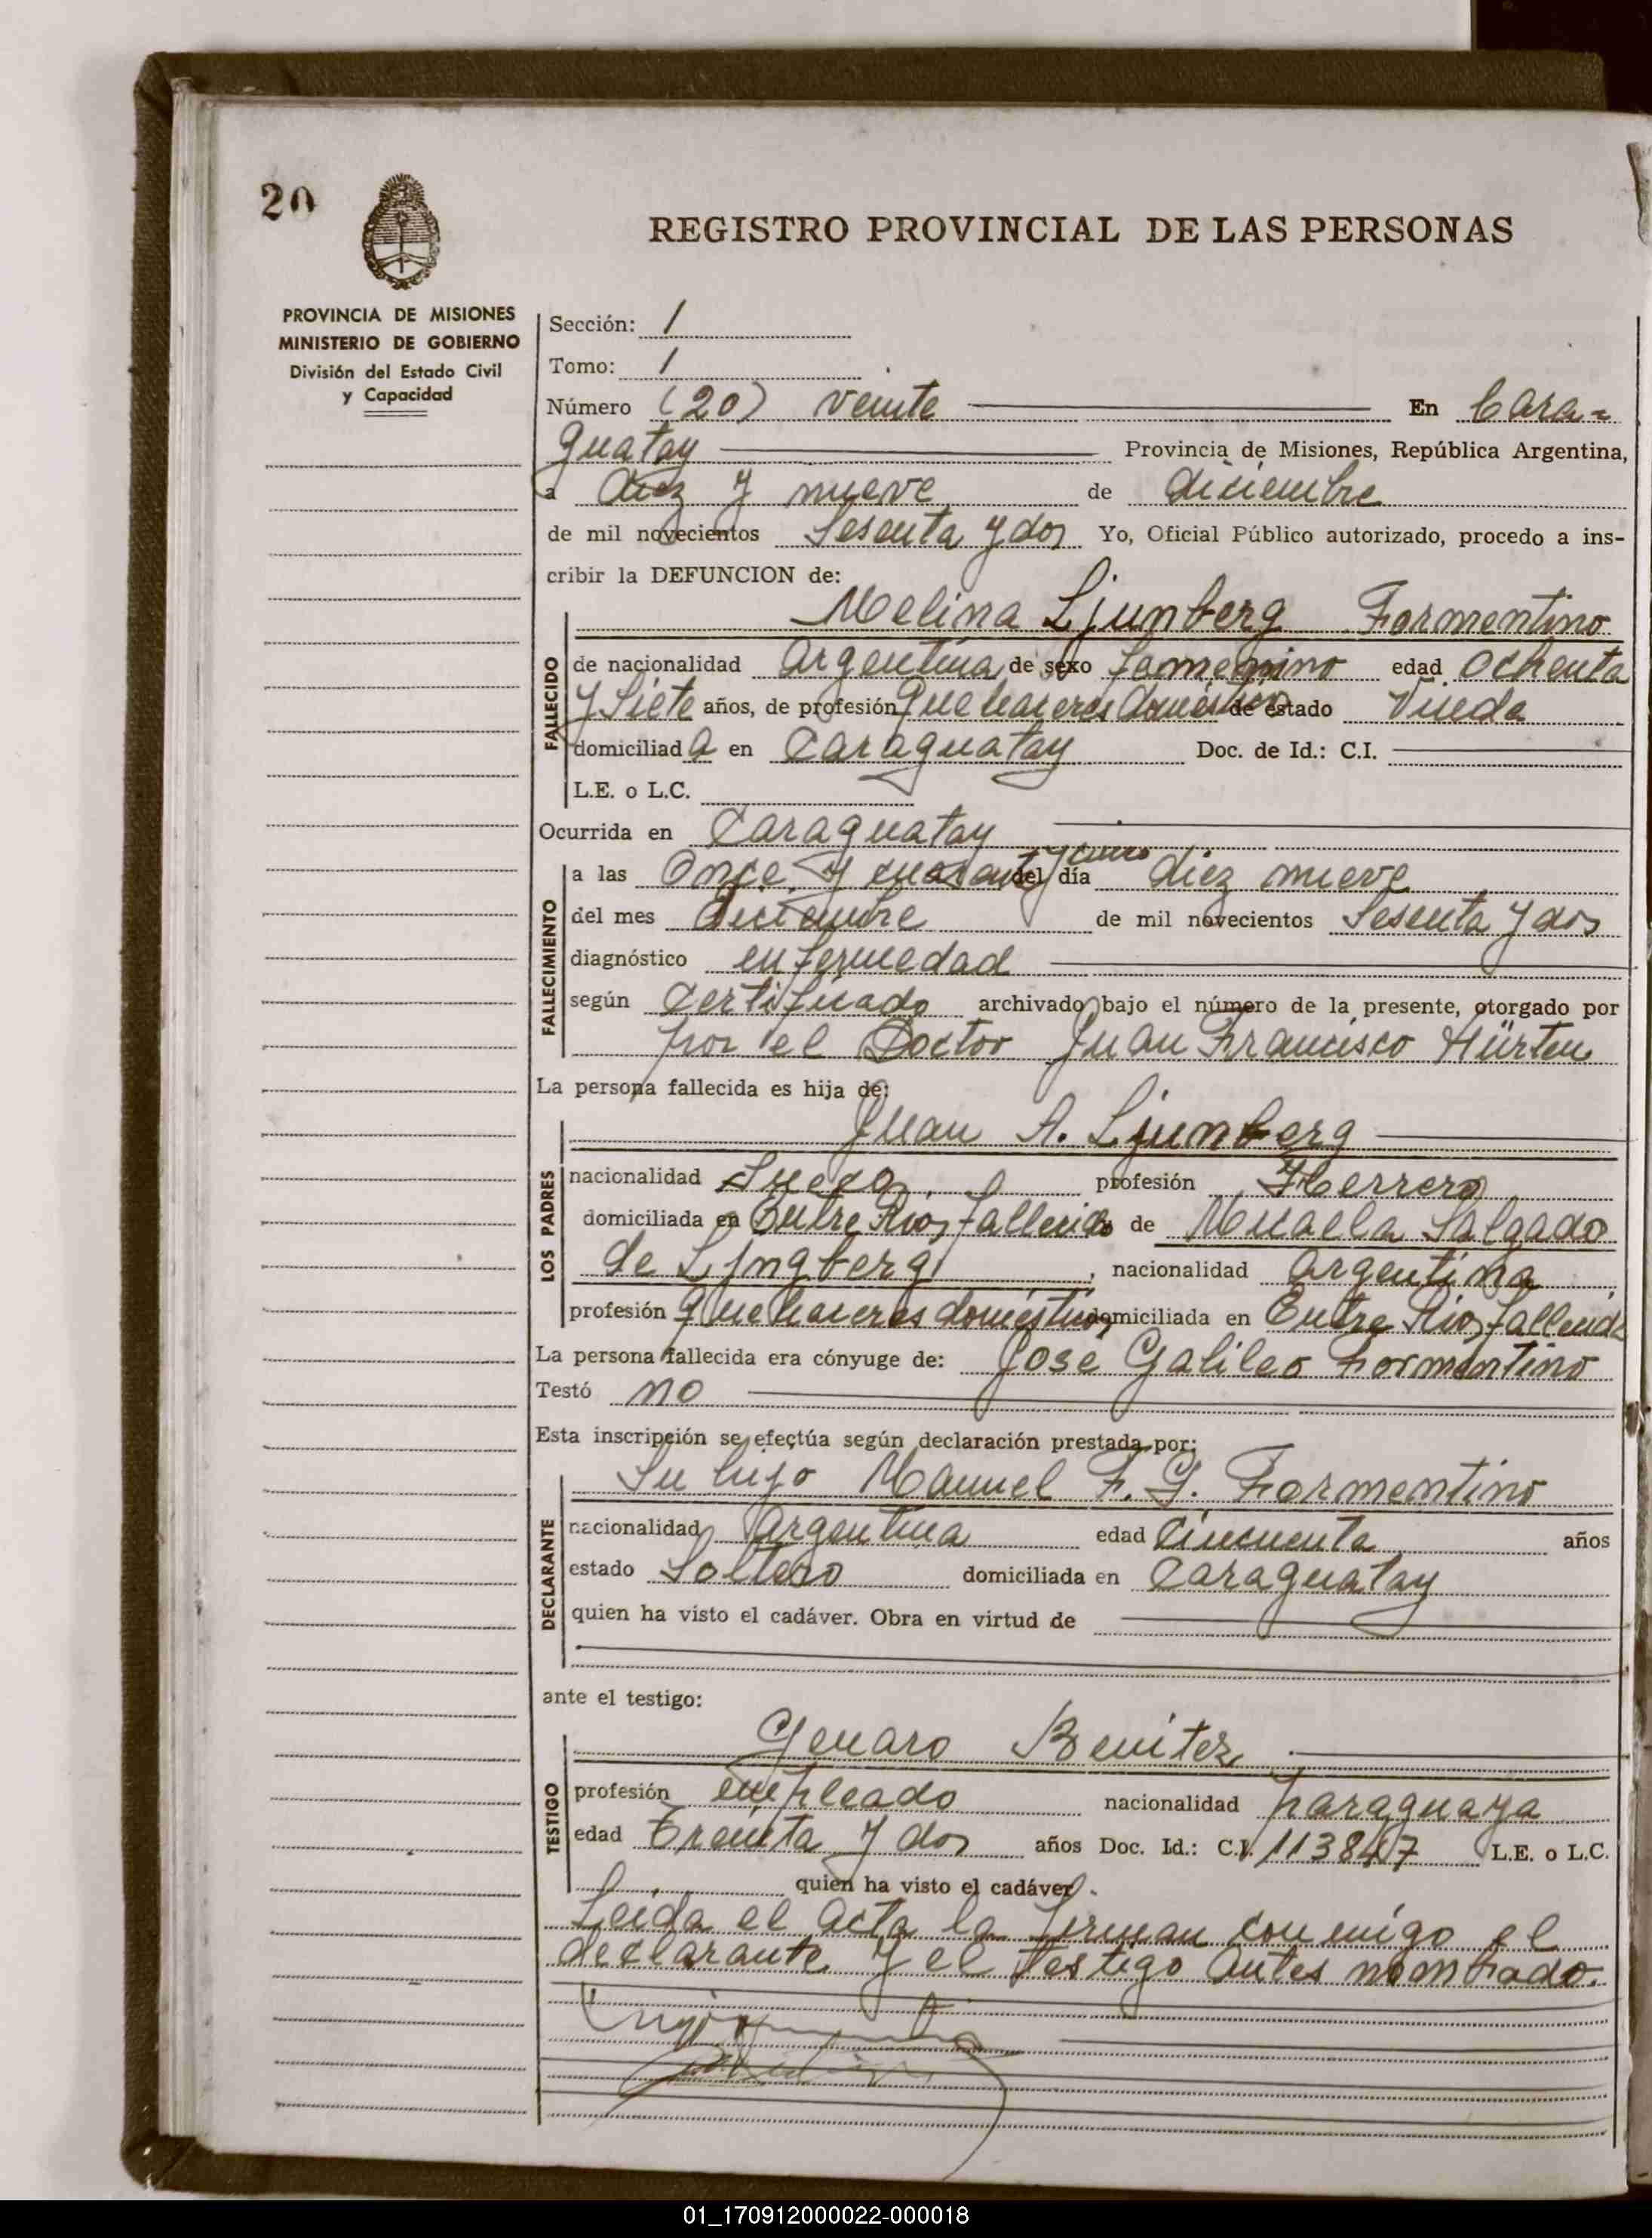 20
REGISTRO PROVINCIAL DE LAS PERSONAS
PROVINCIA DE MISIONES
MINISTERIO DE GOBIERNO
División del Estado Civil
y Capacidad
Sección: 1
Tomo: 1
Número (20) veinte En Cara-
guatay Provincia de Misiones, República Argentina,
a diez y nueve de diciembre
de mil novecientos Sesenta y dos Yo, Oficial Público autorizado, procedo a ins-
cribir la DEFUNCION de:
Melina Ljunberg Formentino
FALLECIDO
de nacionalidad argentina de sexo femenino edad ochenta
y Siete años, de profesión quehaceres domésticos de estado Viuda
domiciliad a en Caraguatay Doc. de Id.: C.I.
L.E. o L.C.
Ocurrida en Caraguatay
FALLECIMIENTO
a las Once y cuarenta y cinco del día diez nueve
del mes diciembre de mil novecientos Sesenta y dos
diagnóstico enfermedad
según Certificado archivado bajo el número de la presente, otorgado por
por el Doctor Juan Francisco Hürten
La persona fallecida es hija de:
Juan A. Ljunberg
LOS PADRES
nacionalidad Sueca profesión Herrero
domiciliada en Entre Rios fallecido de Micaela Salgado
de Lyngberg, nacionalidad argentina
profesión quehaceres domésticos domiciliada en Entre Rios fallecida
La persona fallecida era cónyuge de: Jose Galileo Formentino
Testó no
Esta inscripción se efectúa según declaración prestada por:
Su hijo Manuel F. G. Formentino
DECLARANTE
nacionalidad Argentina edad Cincuenta años
estado Soltero domiciliada en Caraguatay
quien ha visto el cadáver. Obra en virtud de
ante el testigo:
Genaro Benitez
TESTIGO
profesión empleado nacionalidad paraguaya
edad Treinta y dos años Doc. Id.: C.I. 113847 L.E. o L.C.
quien ha visto el cadáver.
Leida el acta la firman conmigo el
declarante y el testigo antes nombrado.
01_170912000022-000018